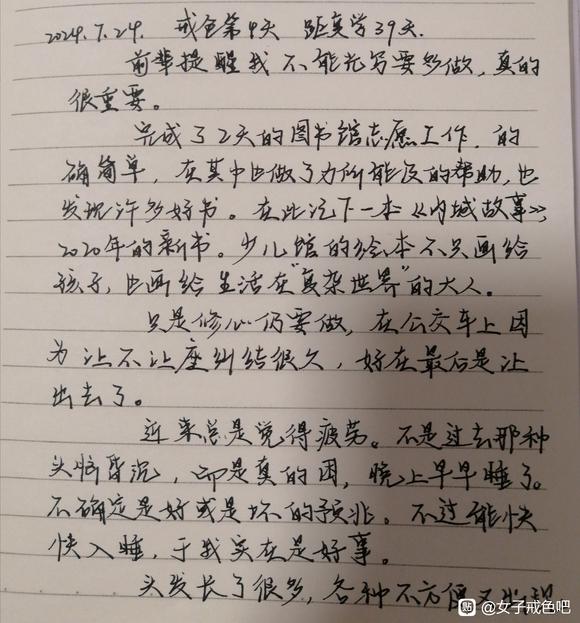 2024.7.24. 戒色第9天 距离学39天.
前辈提醒我不能光写要多做，真的
很重要。
完成了2天的图书馆志愿工作，的
确简单，在其中也做了力所能及的帮助，也
发现许多好书。在此记下一本《内城故事》，
2020年的新书。少儿馆的绘本不只画给
孩子，也画给生活在"复杂世界"的大人。
只是修心仍要做，在公交车上因
为让不让座纠结很久，好在最后是让
出去了。
近来总是觉得疲劳。不是过去那种
头脑昏沉，而是真的困，晚上早早睡了。
不确定是好或是坏的预兆。不过能快
快入睡，于我实在是好事。
头发长了很多，各种不方便又出现
贴 @女子戒色吧